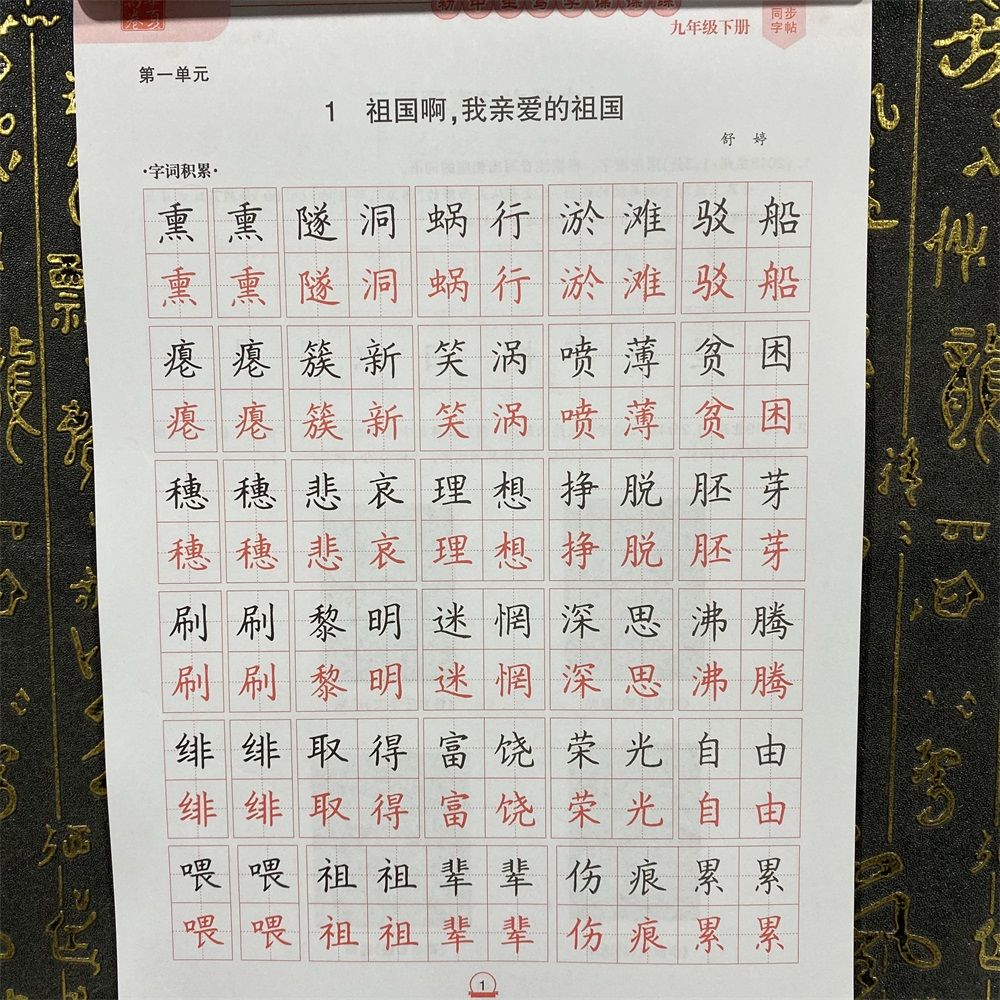 九年级下册
同步
字帖
第一单元
1 祖国啊,我亲爱的祖国
舒 婷
·字词积累·
熏 熏 隧 洞 蜗 行 淤 滩 驳 船
熏 熏 隧 洞 蜗 行 淤 滩 驳 船
瘪 瘪 簇 新 笑 涡 喷 薄 贫 困
瘪 瘪 簇 新 笑 涡 喷 薄 贫 困
穗 穗 悲 哀 理 想 挣 脱 胚 芽
穗 穗 悲 哀 理 想 挣 脱 胚 芽
刷 刷 黎 明 迷 惘 深 思 沸 腾
刷 刷 黎 明 迷 惘 深 思 沸 腾
绯 绯 取 得 富 饶 荣 光 自 由
绯 绯 取 得 富 饶 荣 光 自 由
喂 喂 祖 祖 辈 辈 伤 痕 累 累
喂 喂 祖 祖 辈 辈 伤 痕 累 累
1